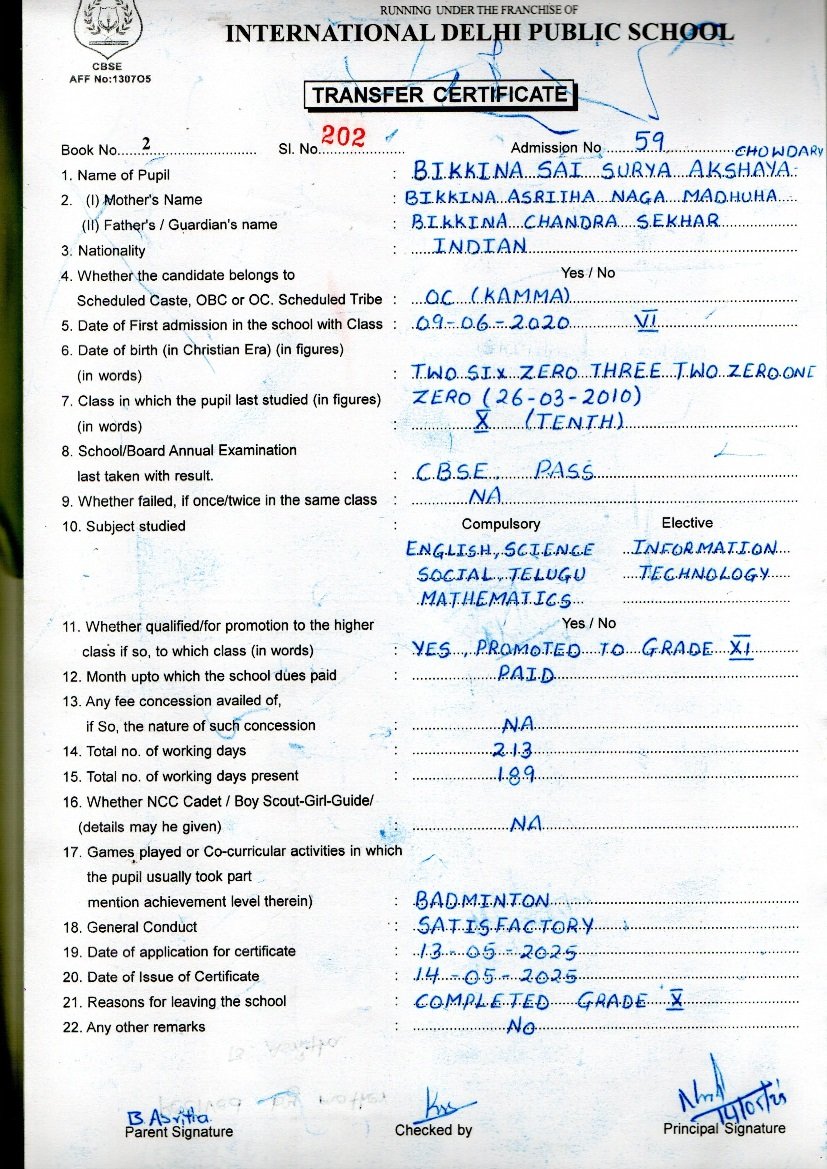 RUNNING UNDER THE FRANCHISE OF
INTERNATIONAL DELHI PUBLIC SCHOOL
CBSE
AFF No:1307O5
TRANSFER CERTIFICATE
Book No. 2 Sl. No. 202 Admission No 59
CHOWDARY
1. Name of Pupil : BIKKINA SAI SURYA AKSHAYA
2. (I) Mother's Name : BIKKINA ASRITHA NAGA MADHUHA
(II) Father's / Guardian's name : BIKKINA CHANDRA SEKHAR
3. Nationality : INDIAN
4. Whether the candidate belongs to Yes / No
Scheduled Caste, OBC or OC. Scheduled Tribe : OC (KAMMA)
5. Date of First admission in the school with Class : 09-06-2020 VI
6. Date of birth (in Christian Era) (in figures)
(in words) : TWO SIX ZERO THREE TWO ZERO ONE
7. Class in which the pupil last studied (in figures) ZERO (26-03-2010)
(in words) : X (TENTH)
8. School/Board Annual Examination
last taken with result. : CBSE, PASS
9. Whether failed, if once/twice in the same class : NA
10. Subject studied : Compulsory Elective
ENGLISH, SCIENCE INFORMATION
SOCIAL, TELUGU TECHNOLOGY
MATHEMATICS
11. Whether qualified/for promotion to the higher Yes / No
class if so, to which class (in words) : YES, PROMOTED TO GRADE XI
12. Month upto which the school dues paid : PAID
13. Any fee concession availed of,
if So, the nature of such concession : NA
14. Total no. of working days : 213
15. Total no. of working days present : 189
16. Whether NCC Cadet / Boy Scout-Girl-Guide/
(details may he given) : NA
17. Games played or Co-curricular activities in which
the pupil usually took part
mention achievement level therein) : BADMINTON
18. General Conduct : SATISFACTORY
19. Date of application for certificate : 13-05-2025
20. Date of Issue of Certificate : 14-05-2025
21. Reasons for leaving the school : COMPLETED GRADE X
22. Any other remarks : NO
B. Asritha 14/05/25
Parent Signature Checked by Principal Signature